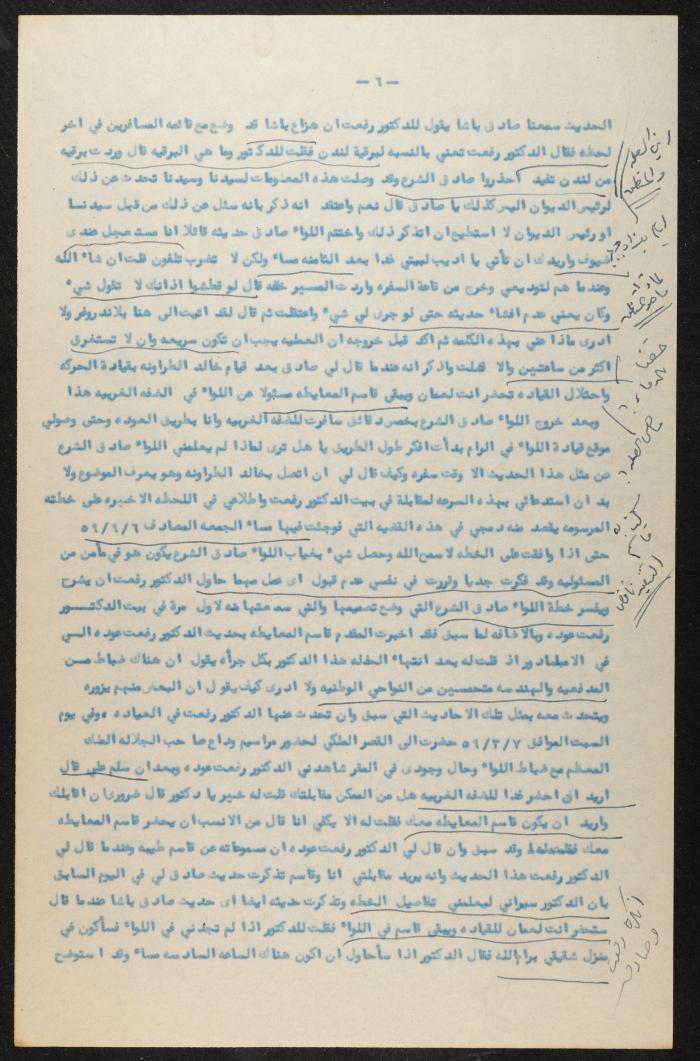 — ٦ —
الحديث سمعنا صادق باشا يقول للدكتور رفعت ان هزاع باشا قد وضع مع قائمه المسافرين في اخر
لحظه فقال الدكتور رفعت تعني بالنسبه لبرقية لندن فقلت للدكتور وما هي البرقيه قال وردت برقيه
من لندن تفيد احذروا صادق الشرع وقد وصلت هذه المعلومات لسيدنا وسيدنا تحدث عن ذلك
لرئيس الديوان اليس كذلك يا صادق قال نعم واعتقد انه ذكر بانه سئل عن ذلك من قبل سيدنا
او رئيس الديوان لا استطيع ان اتذكر ذلك واختتم اللواء صادق حديثه قائلا انا مستعجل عندي
ضيوف واريدك ان تأتي يا اديب لبيتي غدا بعد الثامنه مساء ولكن لا تضرب تلفون قلت ان شاء الله
وعندما هم لتوديعي وخرج من قاعة السفره واردت المسير خلفه قال لو قطشوا اذانك لا تقول شيء
وكان يعني عدم افشاء حديثه حتى لو جرى لي شيء واعتقلت ثم قال لقد اتيت الى هنا بلاندروفر ولا
ادرى ماذا عني بهذه الكلمه ثم اكد قبل خروجه ان العمليه يجب ان تكون سريعه وان لا تستغرق
اكثر من ساعتين والا فشلت واذكر انه عندما قال لي صادق بعد قيام خالد الطراونه بقيادة الحركه
واحتلال القياده تحضر انت لعمان ويبقى قاسم المعايطه مسئولا عن اللواء في الضفه الغربيه هذا
وبعد خروج اللواء صادق الشرع بخمس دقائق سافرت للضفه الغربيه وانا بطريق العوده وحتى وصولي
موقع قيادة اللواء في الرام بدأت افكر طول الطريق يا هل ترى لماذا لم يعلمني اللواء صادق الشرع
عن مثل هذا الحديث الا وقت سفره وكيف قال لي ان اتصل بخالد الطراونه وهو يعرف الموضوع ولا
بد ان استدعائي بهذه السرعه لمقابلة في بيت الدكتور رفعت واطلاعي في اللحظه الاخيره على خطته
المرسومه يقصد منه دمجي في هذه القضيه التي فوجئت فيها مساء الجمعه المصادف ٥٩/٦/٦
حتى اذا وافقت على الخطه لا سمح الله وحصل شيء بغياب اللواء صادق الشرع يكون هو في مأمن من
المسئوليه وقد فكرت جديا وقررت في نفسي عدم قبول اى عمل مهما حاول الدكتور رفعت ان يشرح
ويفسر خطة اللواء صادق الشرع التي وضع تصميمها والتي سمعتها منه لاول مرة في بيت الدكتور
رفعت عوده وبالاضافه لما سبق فقد اخبرت المقدم قاسم المعايطه بحديث الدكتور رفعت عوده الى
في الاصطياد وراذ قلت له بعد انتهاء الحفله هذا الدكتور بكل جرأه يقول ان هناك ضباط من
المدفعيه والهندسه متحمسين من النواحي الوطنيه ولا ادرى كيف يقول ان البعض منهم يزوره
ويتحدث معه بمثل تلك الاحاديث التي سبق وان تحدث عنها الدكتور رفعت في العياده وفي يوم
السبت الموافق ٥٩/٣/٧ حضرت الى القصر الملكي لحضور مراسيم وداع صاحب الجلاله الملك
المعظم مع ضباط اللواء وحال وجودى في المقر شاهدني الدكتور رفعت عوده وبعد ان سلم علي قال
اريد ان احضر غدا للضفه الغربيه هل من الممكن مقابلتك قلت له خير يا دكتور قال ضروري ان اقابلك
واريد ان يكون قاسم المعايطه معك فقلت له الا يكفي انا قال من الانسب ان يحضر قاسم المعايطه
معك فقلت له وقد سبق وان قال لي الدكتور رفعت عوده ان مسموعاته عن قاسم طيبه وعندما قال لي
الدكتور رفعت هذا الحديث وانه يريد مقابلتي انا وقاسم تذكرت حديث صادق لي في اليوم السابق
بان الدكتور سيراني ليعلمني تفاصيل الخطه وتذكرت حديث ايضا اى حديث صادق باشا عندما قال
ستحضر انت لعمان للقياده ويبقى قاسم في اللواء فقلت للدكتور اذا لم تجدني في اللواء فسأكون في
منزل شقيقي برام الله فقال الدكتور اذا سأحاول ان اكون هناك الساعه السادسه مساء وقد استوضح